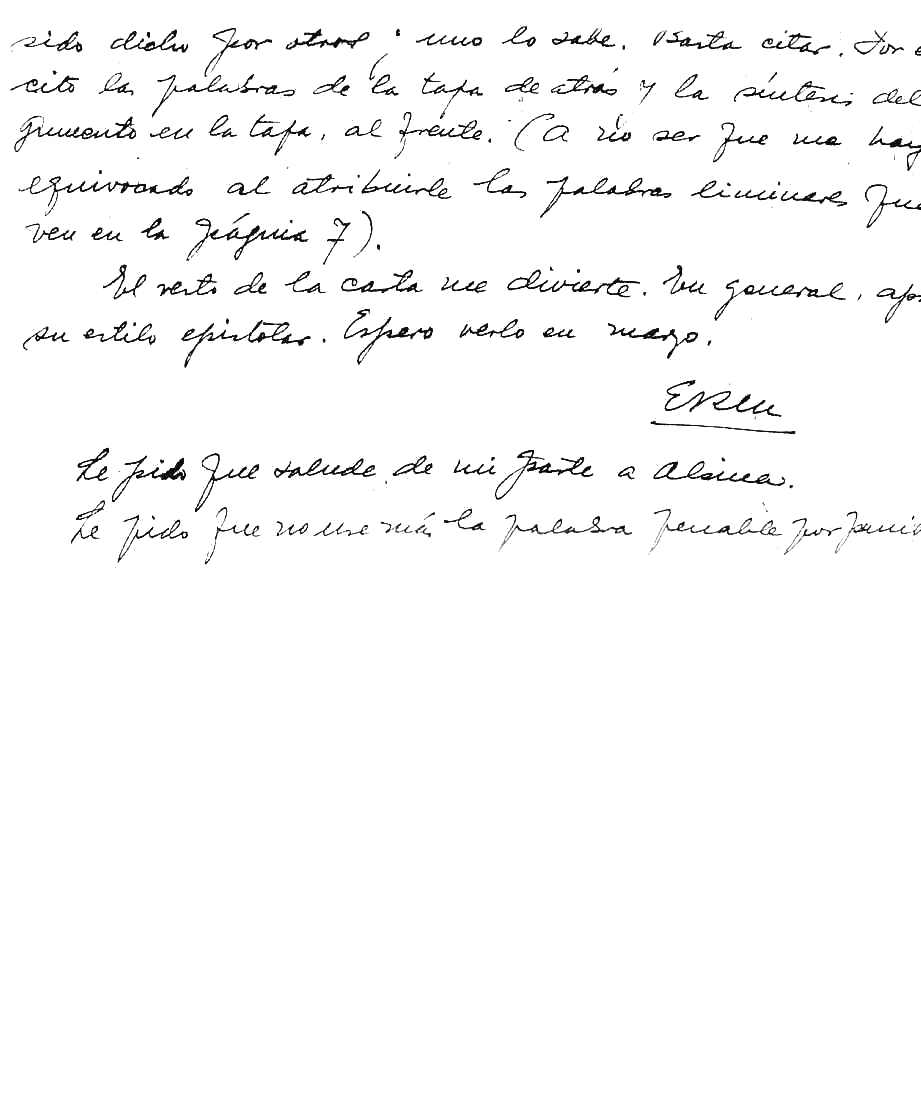 sido dicho por otros; uno lo sabe. Basta citar. Por e
cito las palabras de la tapa de atrás y la síntesis del
gumento en la tapa, al frente. (A no ser que me hay
equivocado al atribuirle las palabras liminares que
ven en la página 7).
El resto de la carta me divierte. En general, apr
su estilo epistolar. Espero verlo en marzo.
Le pido que salude de mi parte a Alsina.
Le pido que no use más la palabra penable por penib